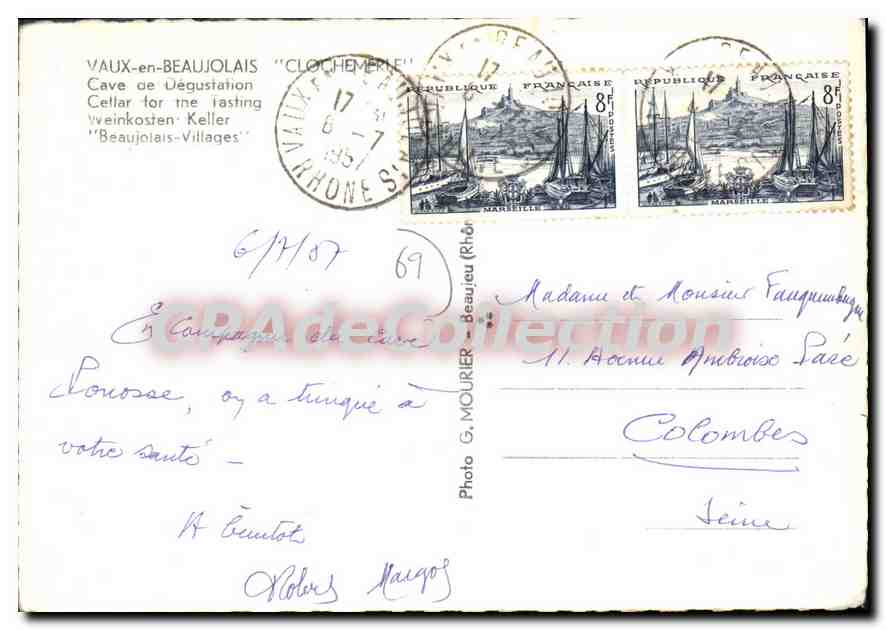 VAUX-en-BEAUJOLAIS "CLOCHEMERLE"
Cave de Dégustation
Cellar for the Tasting
Weinkosten Keller
"Beaujolais-Villages"
17
8 - 7
1957
RHONE
REPUBLIQUE FRANÇAISE
8F
POSTES
MARSEILLE
REPUBLIQUE FRANÇAISE
8F
POSTES
MARSEILLE
6/7/57
69
CPAdeCollection
En Compagnie du
on a trinqué à
votre santé -
A bientôt
Robert Margot
Photo G. MOURIER - Beaujeu (Rhôn
Madame et Monsieur
11 Avenue Ambroise Paré
Colombes
Seine